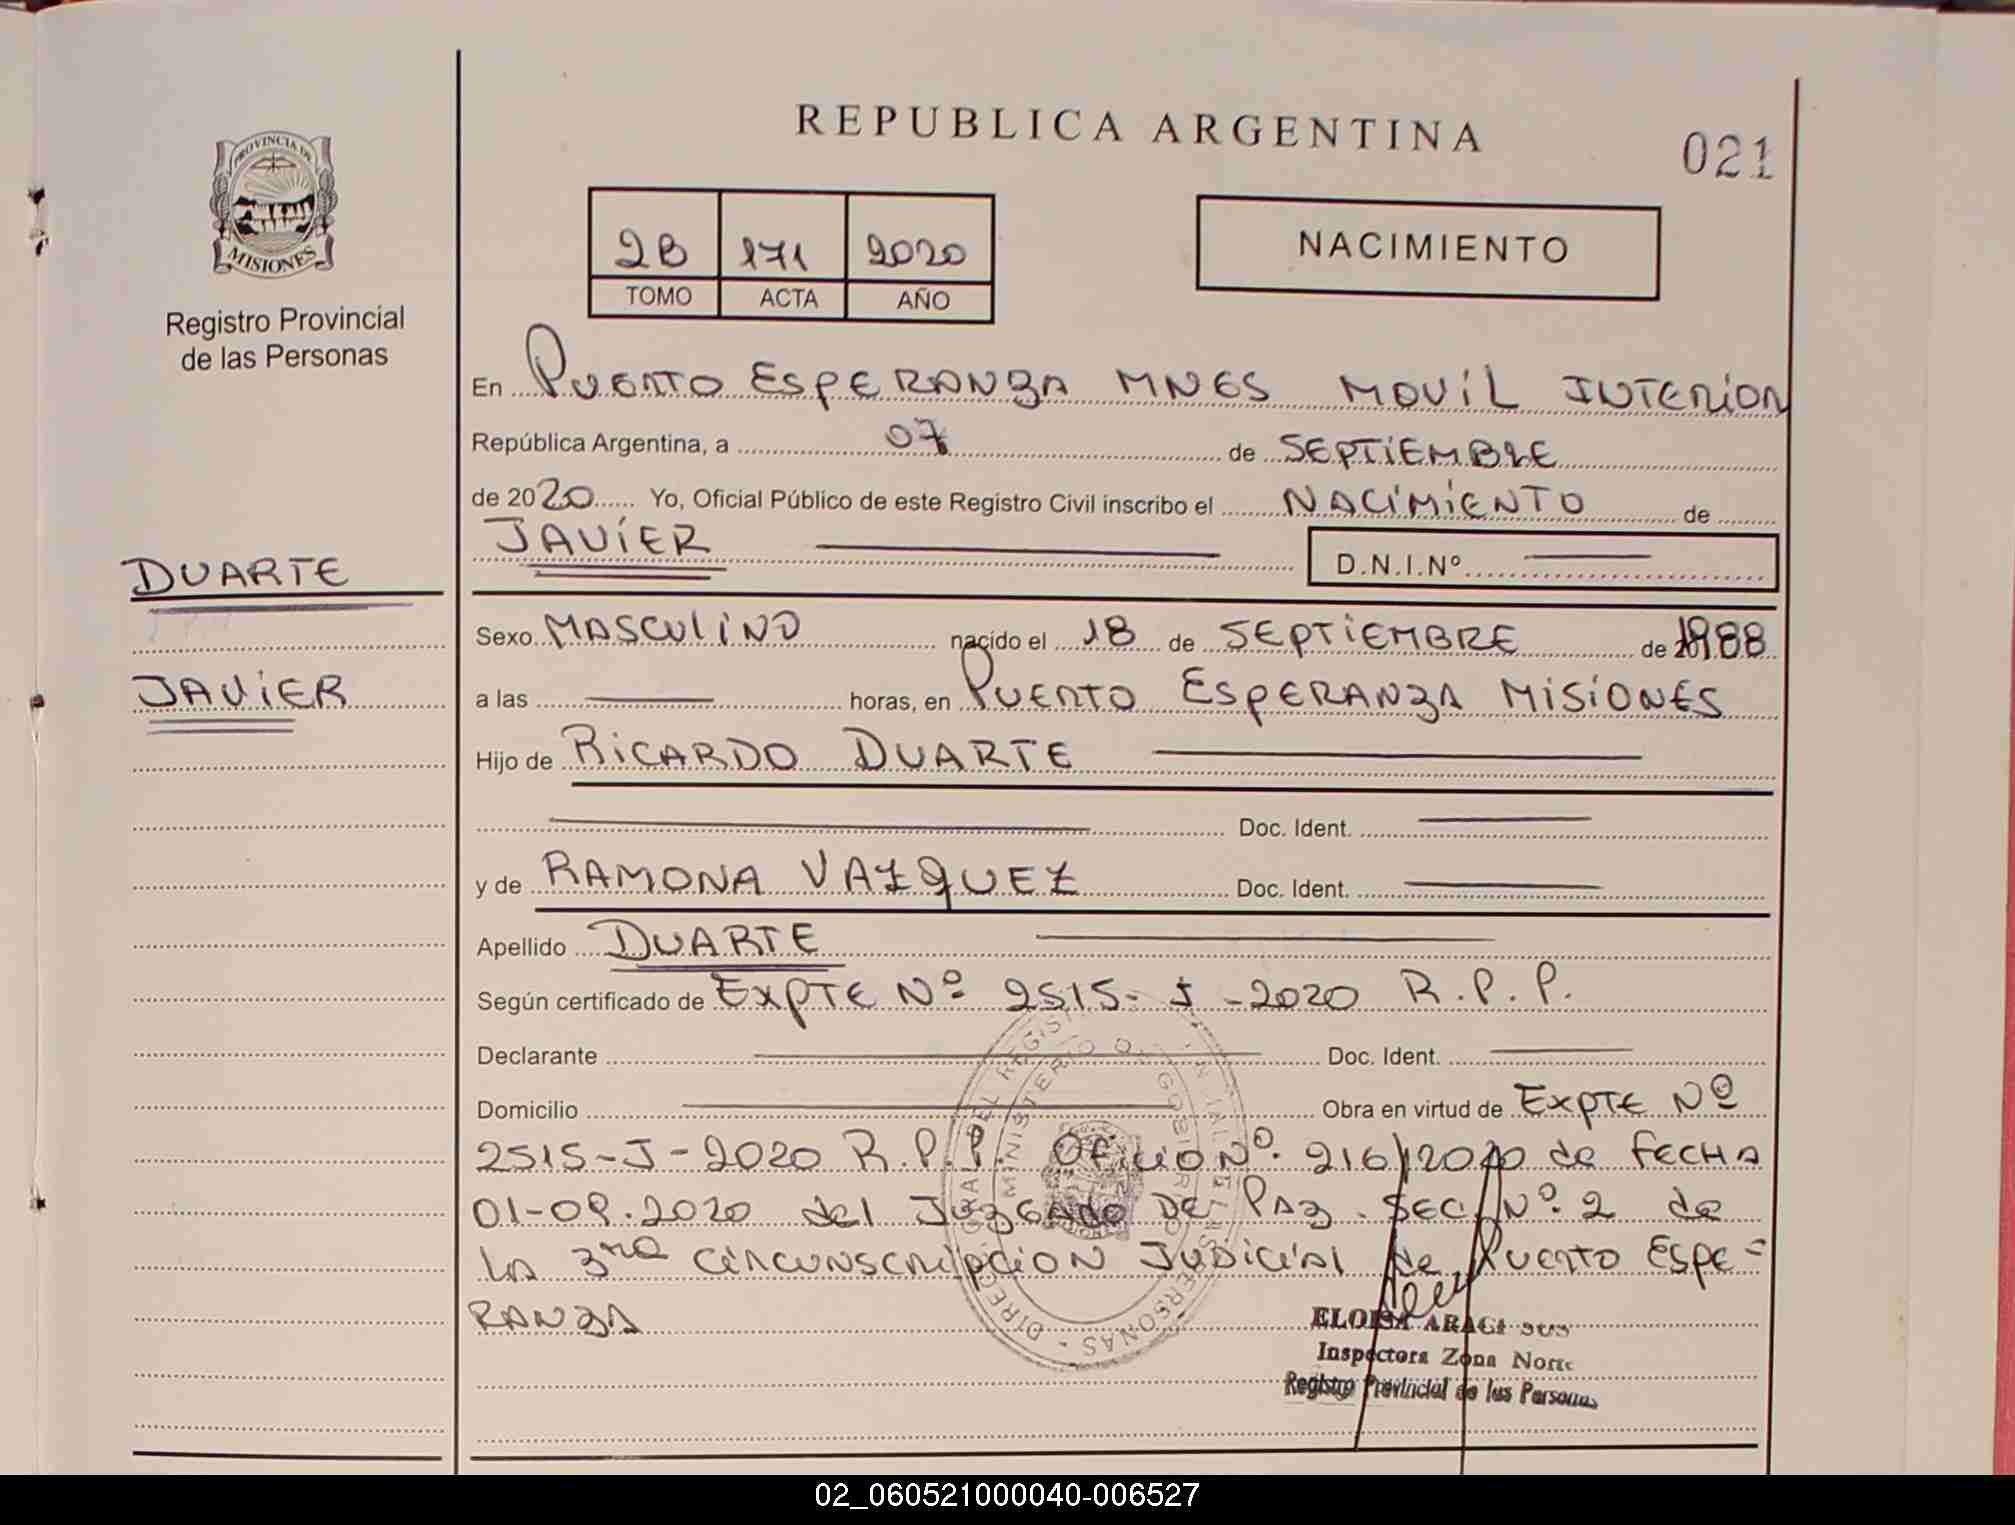 REPUBLICA ARGENTINA
021
PROVINCIA DE
MISIONES
Registro Provincial
de las Personas
2B 171 2020
TOMO ACTA AÑO
NACIMIENTO
En PUERTO ESPERANZA MNES MOVIL INTERIOR
República Argentina, a 07 de SEPTIEMBRE
de 2020 Yo, Oficial Público de este Registro Civil inscribo el NACIMIENTO de
JAVIER D.N.I.Nº
DUARTE
Sexo MASCULINO nacido el 18 de SEPTIEMBRE de 1988
JAVIER
a las horas, en PUERTO ESPERANZA MISIONES
Hijo de RICARDO DUARTE
Doc. Ident.
y de RAMONA VAZQUEZ Doc. Ident.
Apellido DUARTE
Según certificado de EXPTE Nº 2515-J-2020 R.P.P.
Declarante Doc. Ident.
Domicilio Obra en virtud de EXPTE Nº
2515-J-2020 R.P.P. Oficio Nº. 216/2020 de FECHA
01-09.2020 del JUZGADO DE PAZ. SEC. Nº. 2 de
LA 3ra CIRCUNSCRIPCION JUDICIAL de PUERTO ESPE=
RANZA
MINISTERIO DE GOBIERNO
ELOISA
Inspectora Zona Norte
Registro Provincial de las Personas
02_060521000040-006527